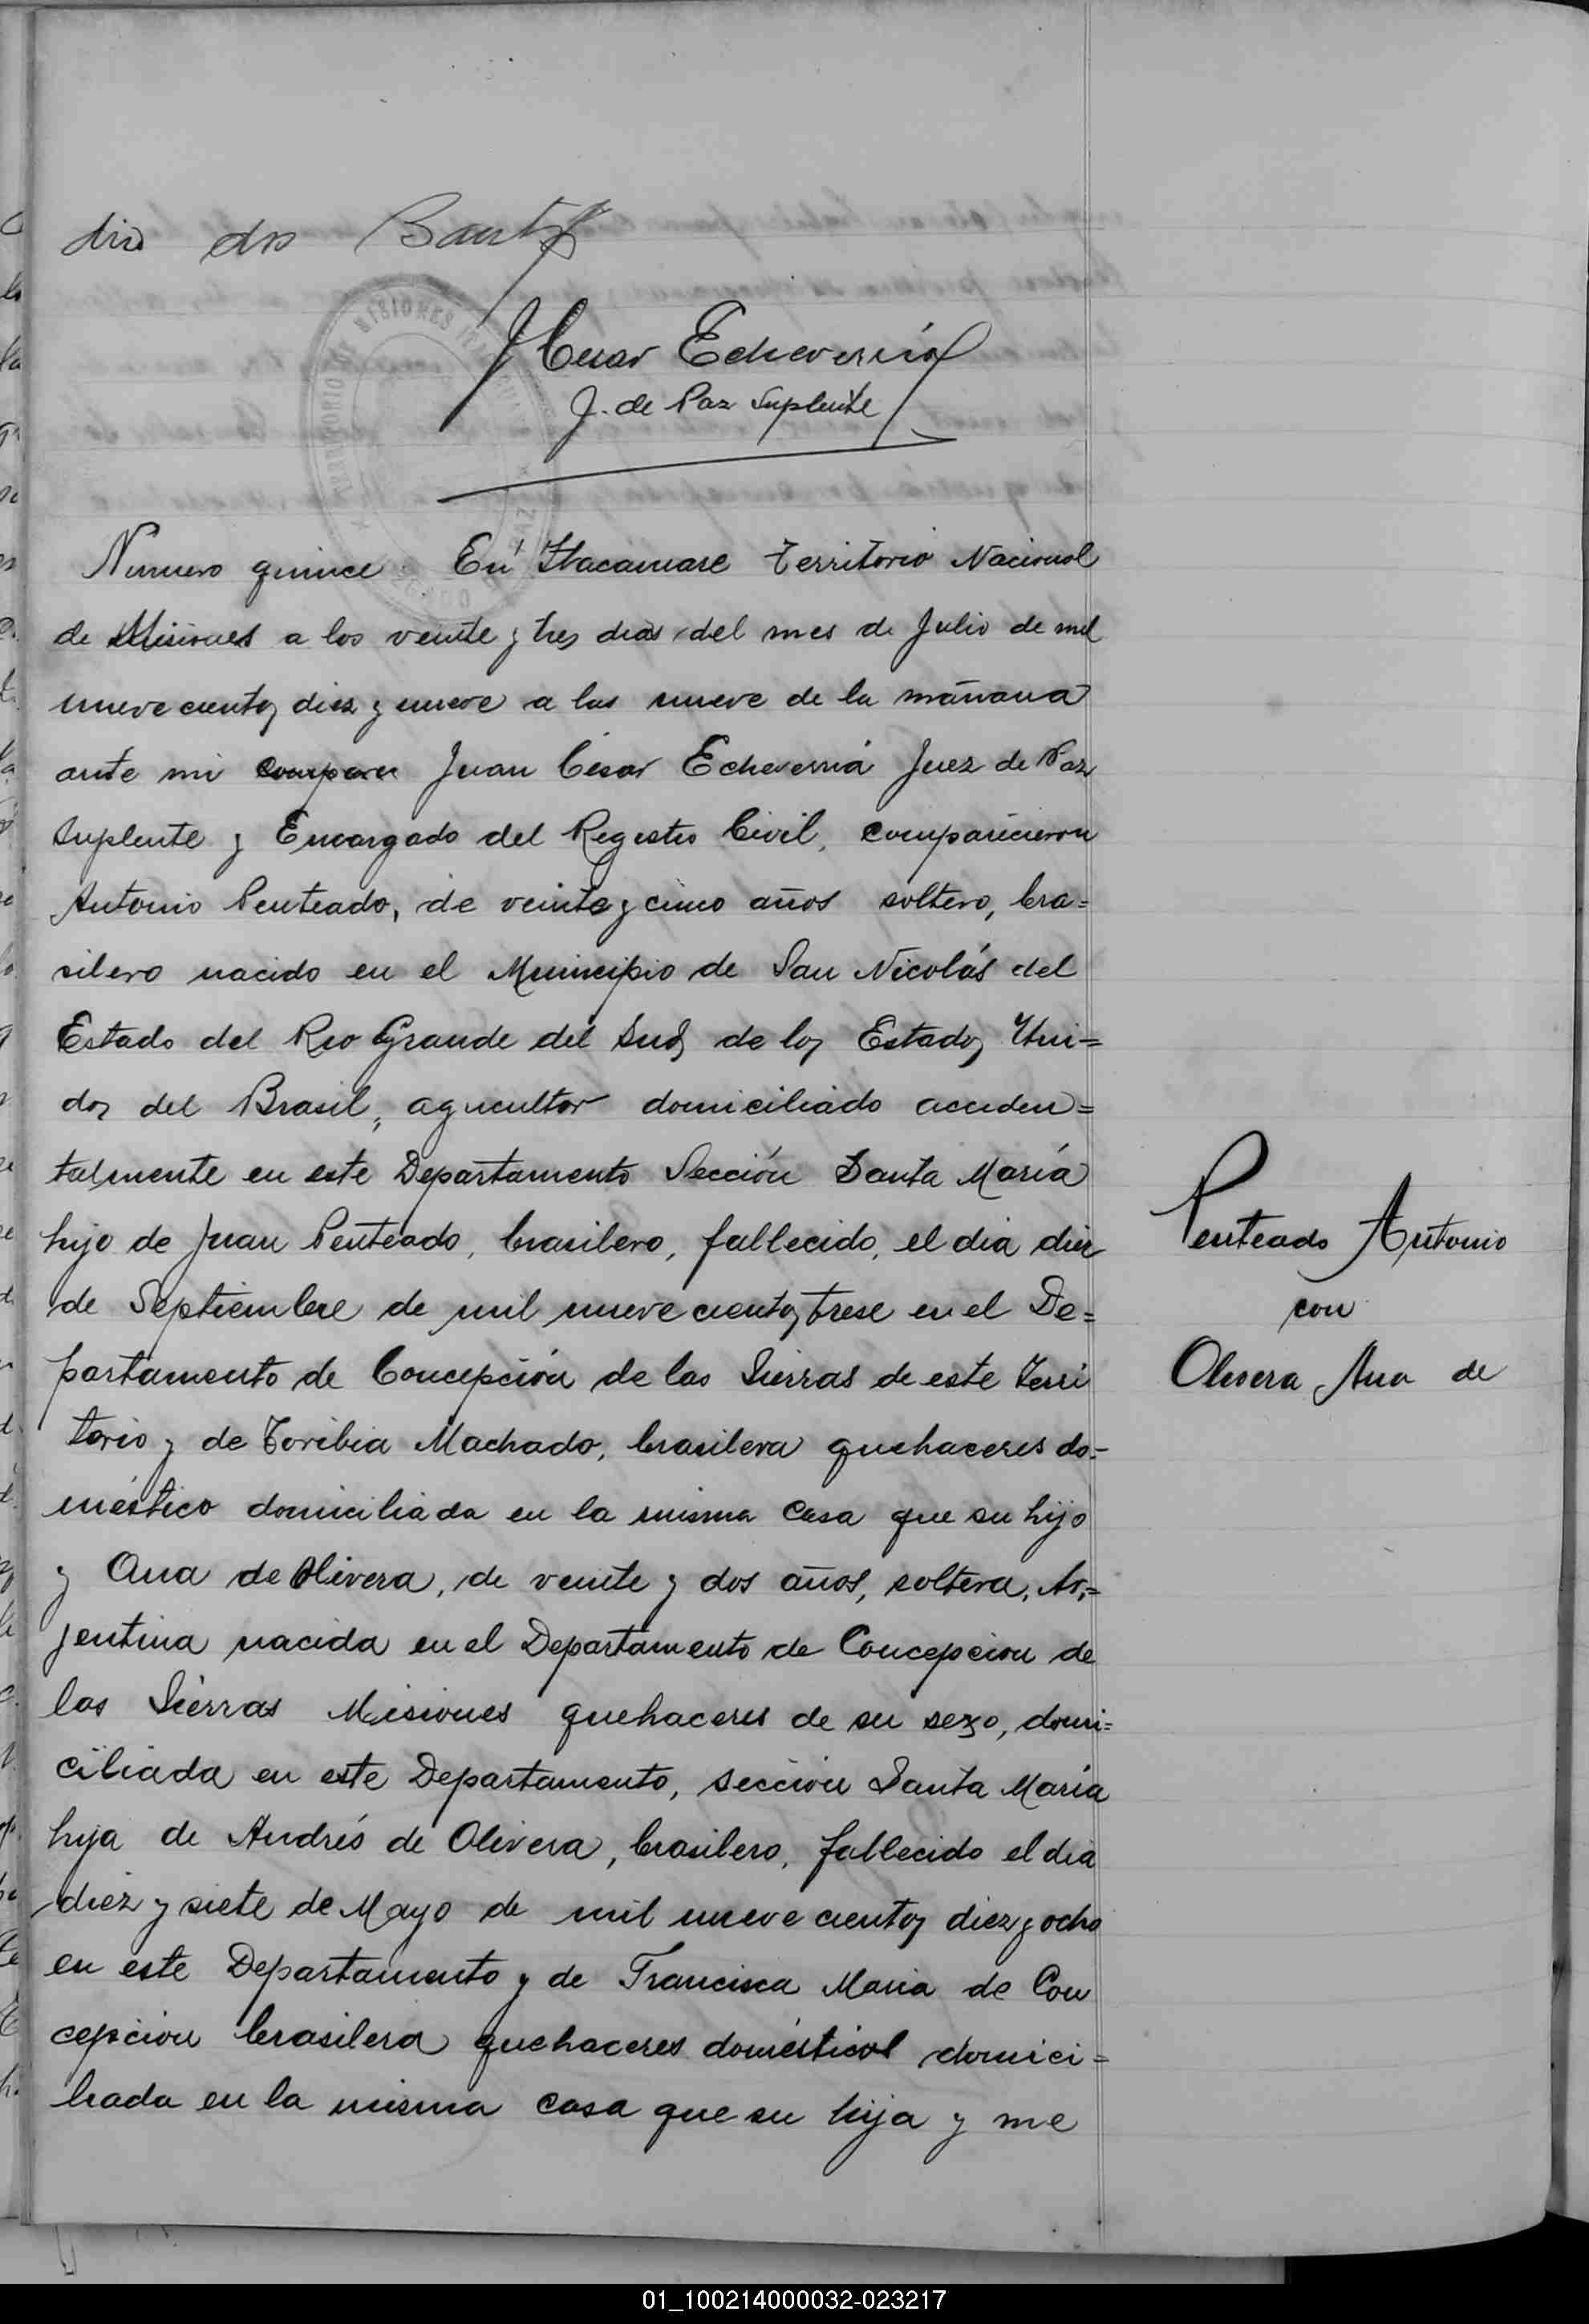 dio dos Santos
J Cesar Echeverría
J. de Paz Suplente
TERRITORIO DE MISIONES
Numero quince En Itacaruare Territorio Nacional
de Misiones a los veinte y tres dias del mes de Julio de mil
nueve cientos diez y nueve a las nueve de la mañana
ante mi compare Juan César Echeverria Juez de Paz
Suplente y Encargado del Registro Civil, comparecieron
Antonio Penteado, de veinte y cinco años soltero, bra=
silero nacido en el Municipio de San Nicolás del
Estado del Rio Grande del Sud, de los Estados Uni=
dos del Brasil, agricultor domiciliado acciden=
talmente en este Departamento Sección Santa María
hijo de Juan Penteado, brasilero, fallecido, el dia diez
de Septiembre de mil nueve cientos trese en el De=
partamento de Concepción de las Sierras de este Terri
torio y de Toribia Machado, brasilera quehaceres do=
méstico domiciliada en la misma casa que su hijo
y Ana de Olivera, de veinte y dos años, soltera, Ar=
jentina nacida en el Departamento de Concepcion de
las Sierras Misiones quehaceres de su sexo, domi=
ciliada en este Departamento, sección Santa María
hija de Andrés de Olivera, brasilero, fallecido el dia
diez y siete de Mayo de mil nueve cientos diez y ocho
en este Departamento y de Francisca Maria de Con
cepción brasilera quehaceres domésticos domici=
liada en la misma casa que su hija y me
Penteado Antonio
con
Olivera Ana de
01_100214000032-023217